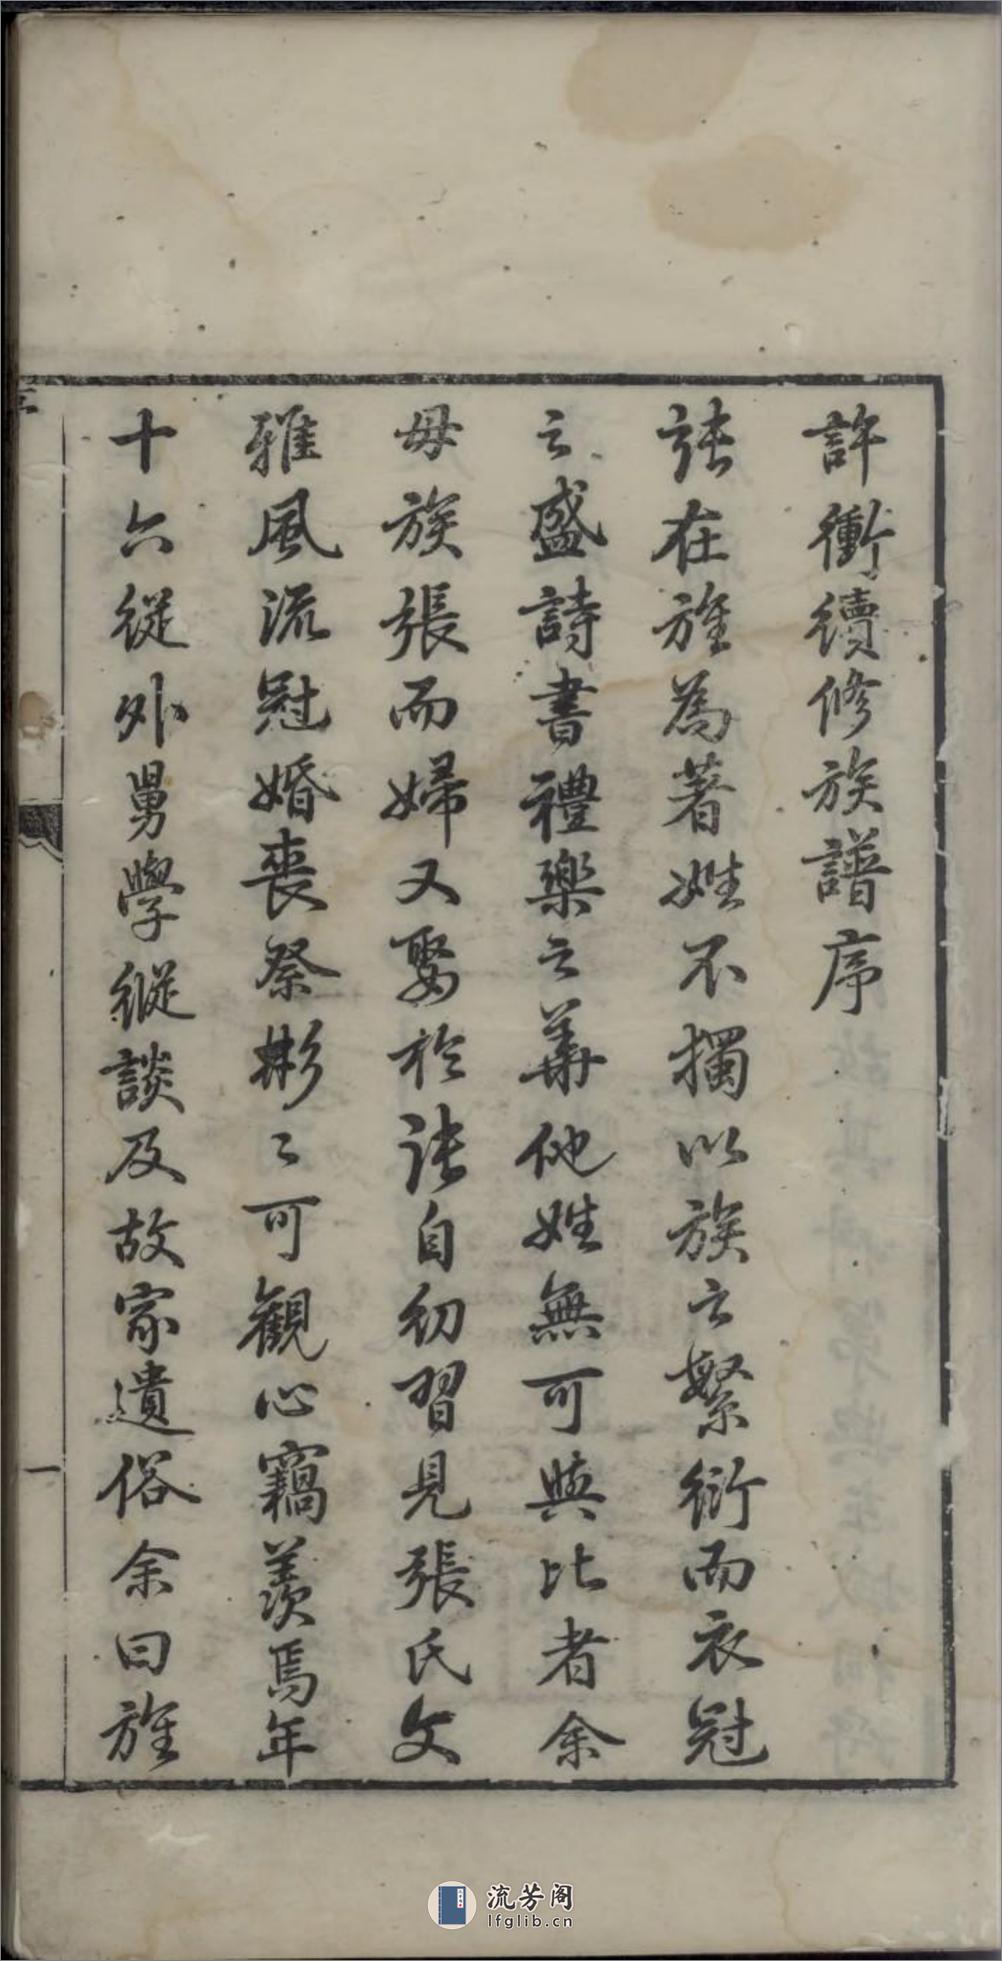 許衝續修族譜序
張在旌為著姓不獨以族之繁衍而衣冠
之盛詩書禮樂之華他姓無可與比者余
母族張而婦又娶於張自幼習見張氏文
雅風流冠婚喪祭彬〻可觀心竊羨焉年
十六從外舅學縱談及故家遺俗余曰旌
一
流芳阁
lfglib.cn